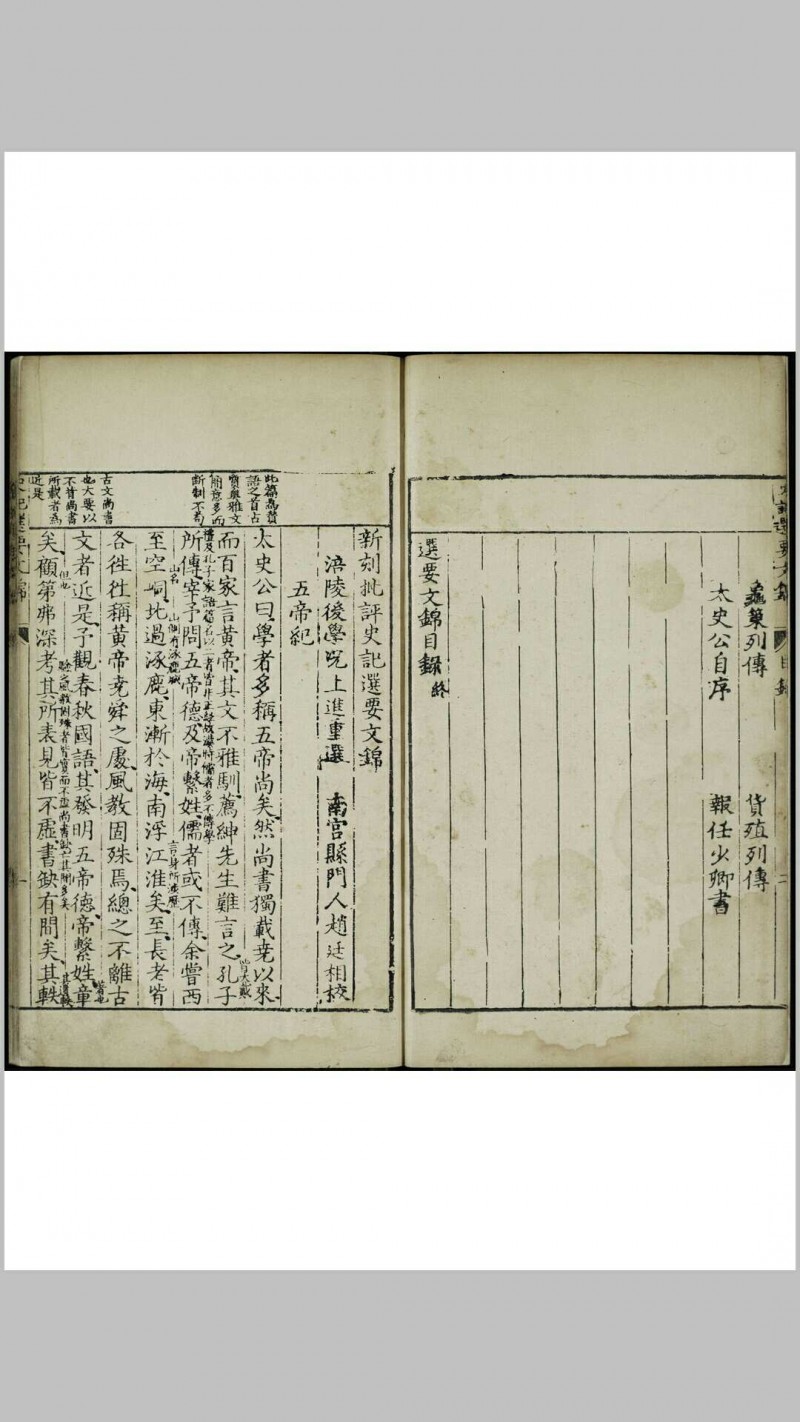 龜策列傳 貨殖列傳
太史公自序 報任少卿書
選要文錦目録終
此篇為贊
語之首古
質奥雅文
簡意多而
斷制不茍
古文尚書
也大要以
不背尚書
所載者為
近是
新刻批評史記選要文錦
涪陵後學况上進重選 南宫縣門人趙廷相校
五帝紀
太史公曰學者多稱五帝尚矣然尚書獨載堯以來
而百家言黄帝其文不雅馴薦紳先生難言之孔子
皆大戴
禮及孔子家語篇名以二者皆非正經故漢時儒者多不傳學
所傳宰予問五帝德及帝繫姓儒者或不傳余嘗西
山名 山側有涿鹿城 言身所渉歴
至空峒北過涿鹿東漸於海南浮江淮矣至長老皆
各往往稱黄帝堯舜之處風教固殊焉總之不離古
文者近是予觀春秋國語其發明五帝德帝繫姓章
皆也
但也
矣顧第弗深考其所表見皆不虛書缺有間矣其軼